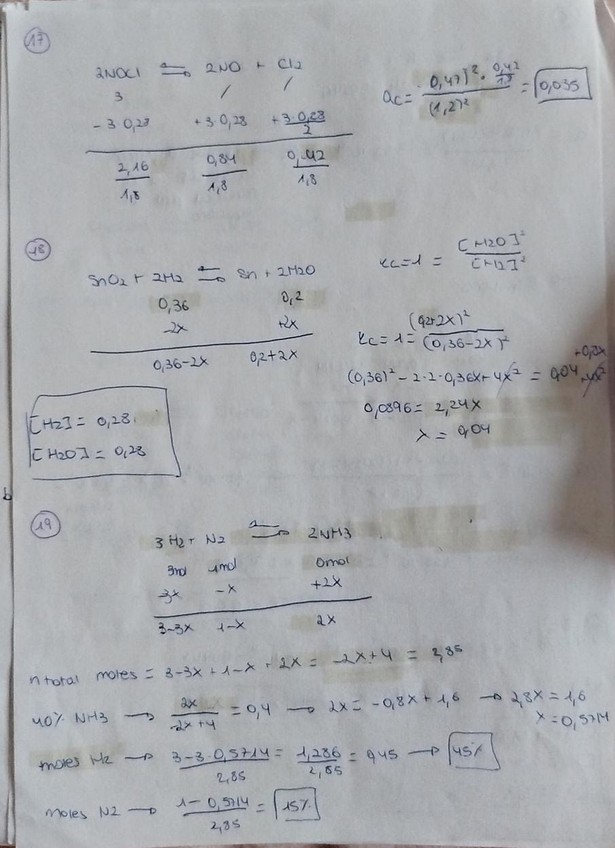 17
2NOCl ⇌ 2NO + Cl2
3 / /
- 3·0,28 + 3·0,28 + 3·0,28/2
2,16/1,8 0,84/1,8 0,42/1,8
Qc = 0,47)² · 0,42/1,8 / (1,2)² = 0,035
18
SnO2 + 2H2 ⇌ Sn + 2H2O
0,36 0,2
-2x +2x
0,36-2x 0,2+2x
[H2] = 0,28
[H2O] = 0,28
Kc=1 = [H2O]²/[H2]²
Kc=1= (0,2+2x)²/(0,36-2x)²
(0,36)² - 2·2·0,36x + 4x² = 0,04 +0,8x +4x²
0,0896 = 2,24x
x = 0,04
19
3H2 + N2 ⇌ 2NH3
3mol 1mol 0mol
-3x -x +2x
3-3x 1-x 2x
n total moles = 3-3x + 1-x + 2x = -2x+4 = 2,85
40% NH3 → 2x/-2x+4 = 0,4 → 2x = -0,8x + 1,6 → 2,8x = 1,6
x = 0,5714
moles H2 → 3-3·0,5714/2,85 = 1,286/2,85 = 0,45 → 45%
moles N2 → 1-0,5714/2,85 = 15%